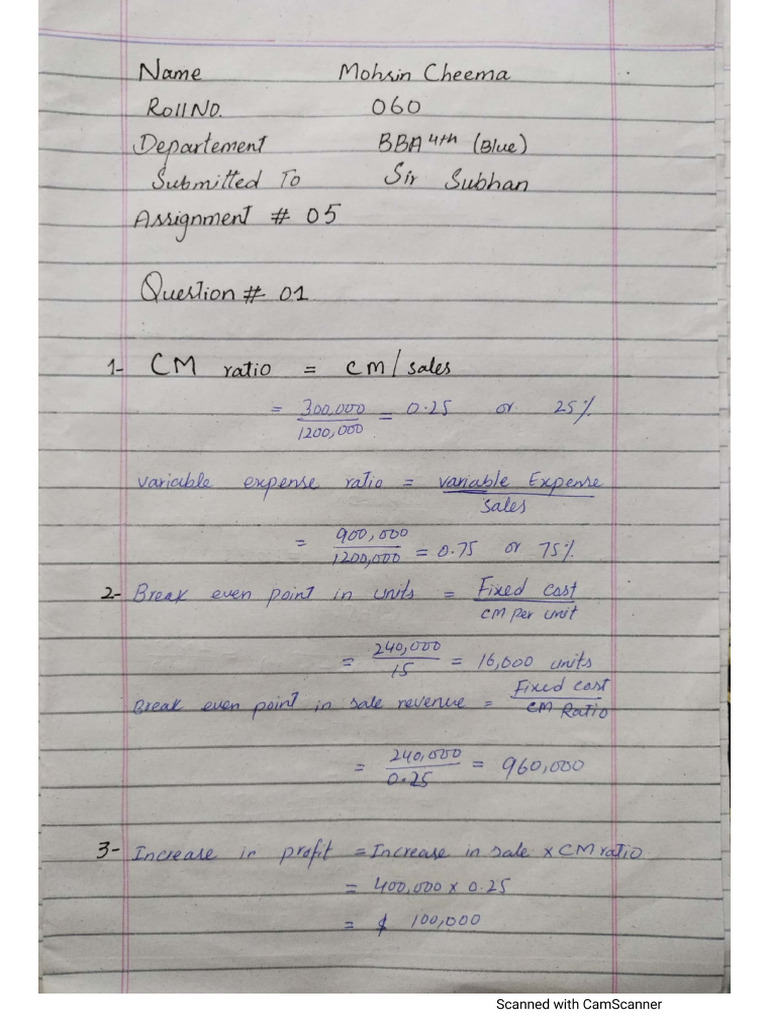 Name Mohsin Cheema
Roll No. 060
Departement BBA 4th (Blue)
Submitted To Sir Subhan
Assignment # 05
Question # 01
1- CM ratio = CM/sales
= 300,000/1200,000 = 0.25 or 25%
variable expense ratio = variable Expense/sales
= 900,000/1200,000 = 0.75 or 75%
2- Break even point in units = Fixed cost/CM per unit
= 240,000/15 = 16,000 units
Break even point in sale revenue = Fixed cost/CM Ratio
= 240,000/0.25 = 960,000
3- Increase in profit = Increase in sale × CM ratio
= 400,000 × 0.25
= $ 100,000
Scanned with CamScanner